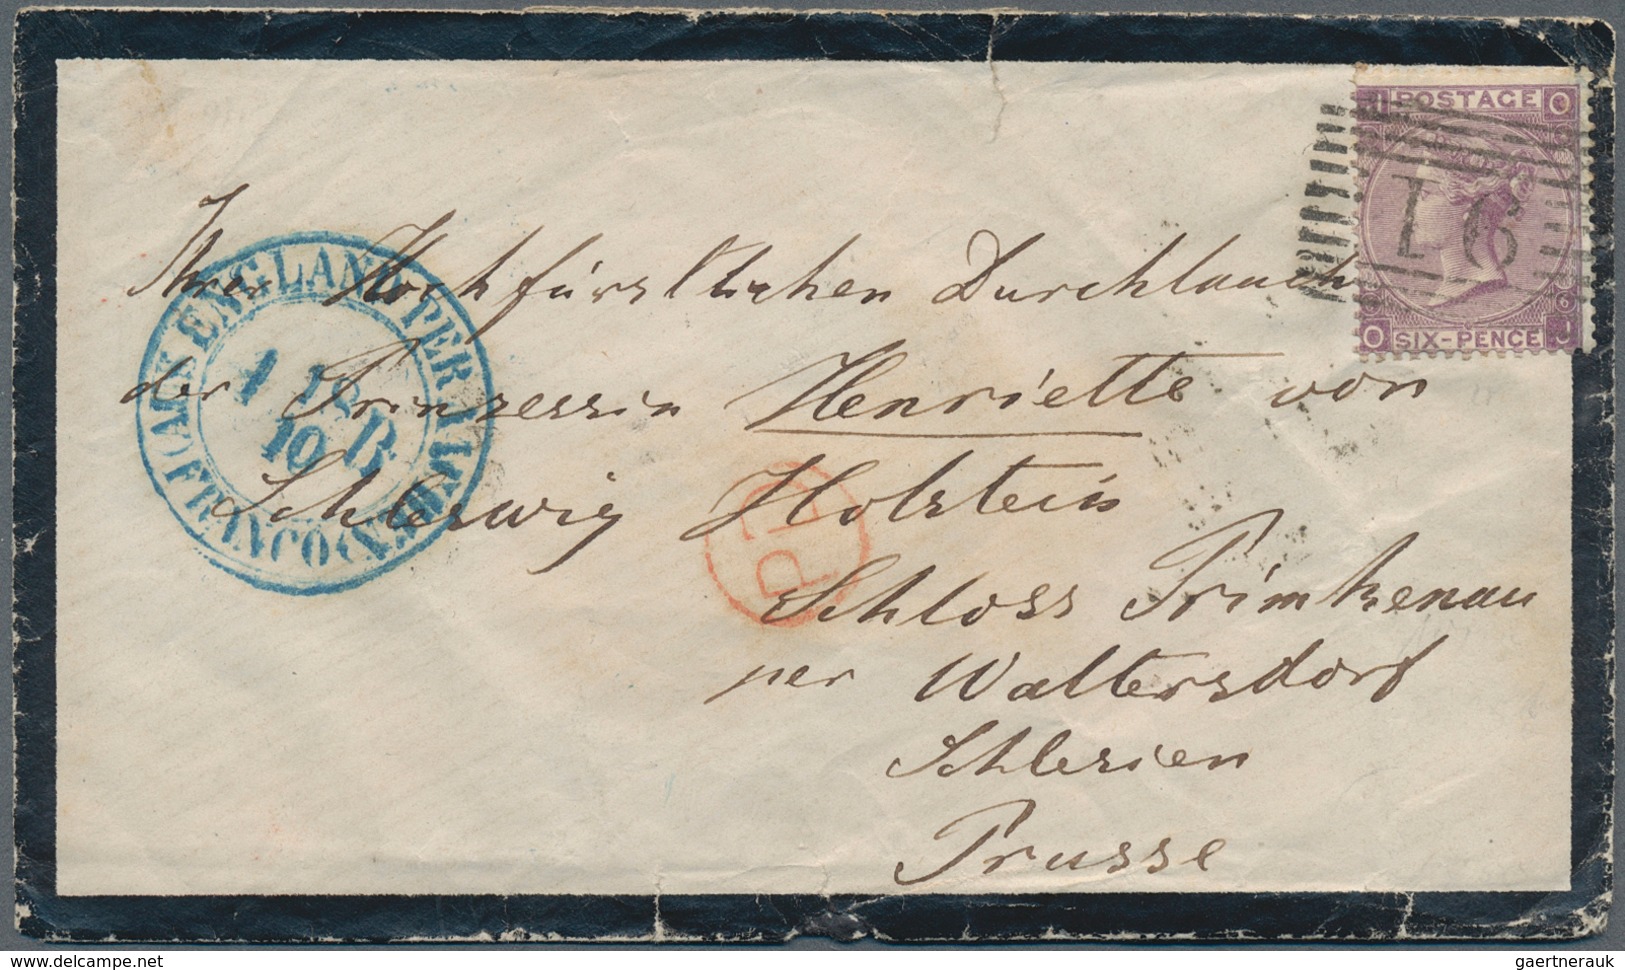 Ihrer Hochfürstlichen Durchlauch
der Prinzessin Henriette von
Schleswig Holstein
Schloss Primkenau
per Waltersdorf
Schlesien
Prusse
ENGLAND PER
FRANCO
1 FEB
10
PD
I POSTAGE O
I 6
O SIX-PENCE I
6
delcampe.net
gaertnerauk